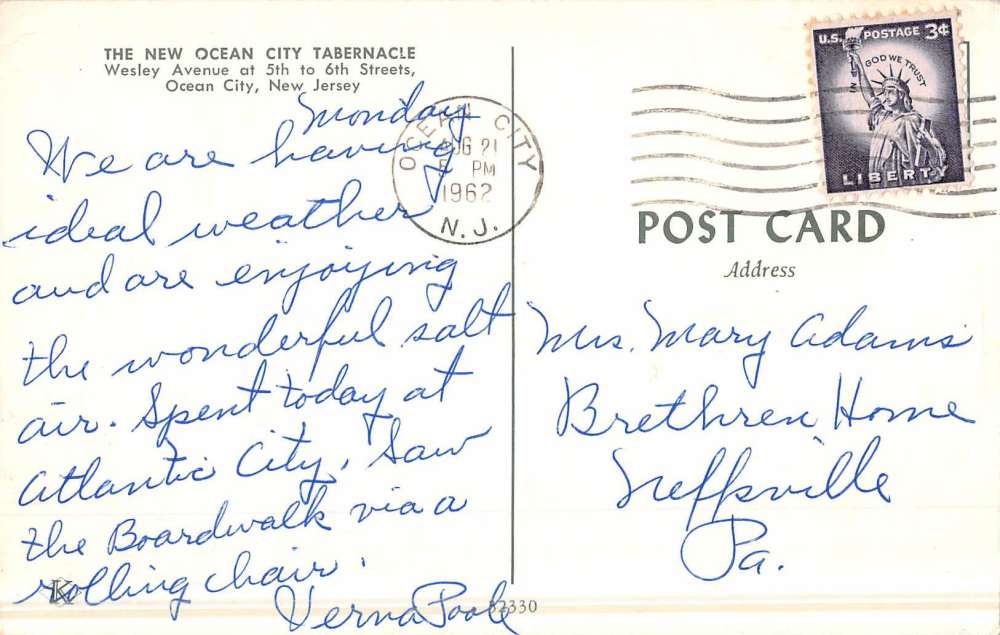 THE NEW OCEAN CITY TABERNACLE
Wesley Avenue at 5th to 6th Streets,
Ocean City, New Jersey
Monday
We are having
ideal weather
and are enjoying
the wonderful salt
air. Spent today at
Atlantic City. Saw
the Boardwalk via a
rolling chair.
Verna Poole
K
52330
OCEAN CITY
AUG 21
PM
1962
N.J.
U.S. POSTAGE 3¢
IN GOD WE TRUST
LIBERTY
POST CARD
Address
Mrs. Mary Adams
Brethren Home
Neffsville
Pa.